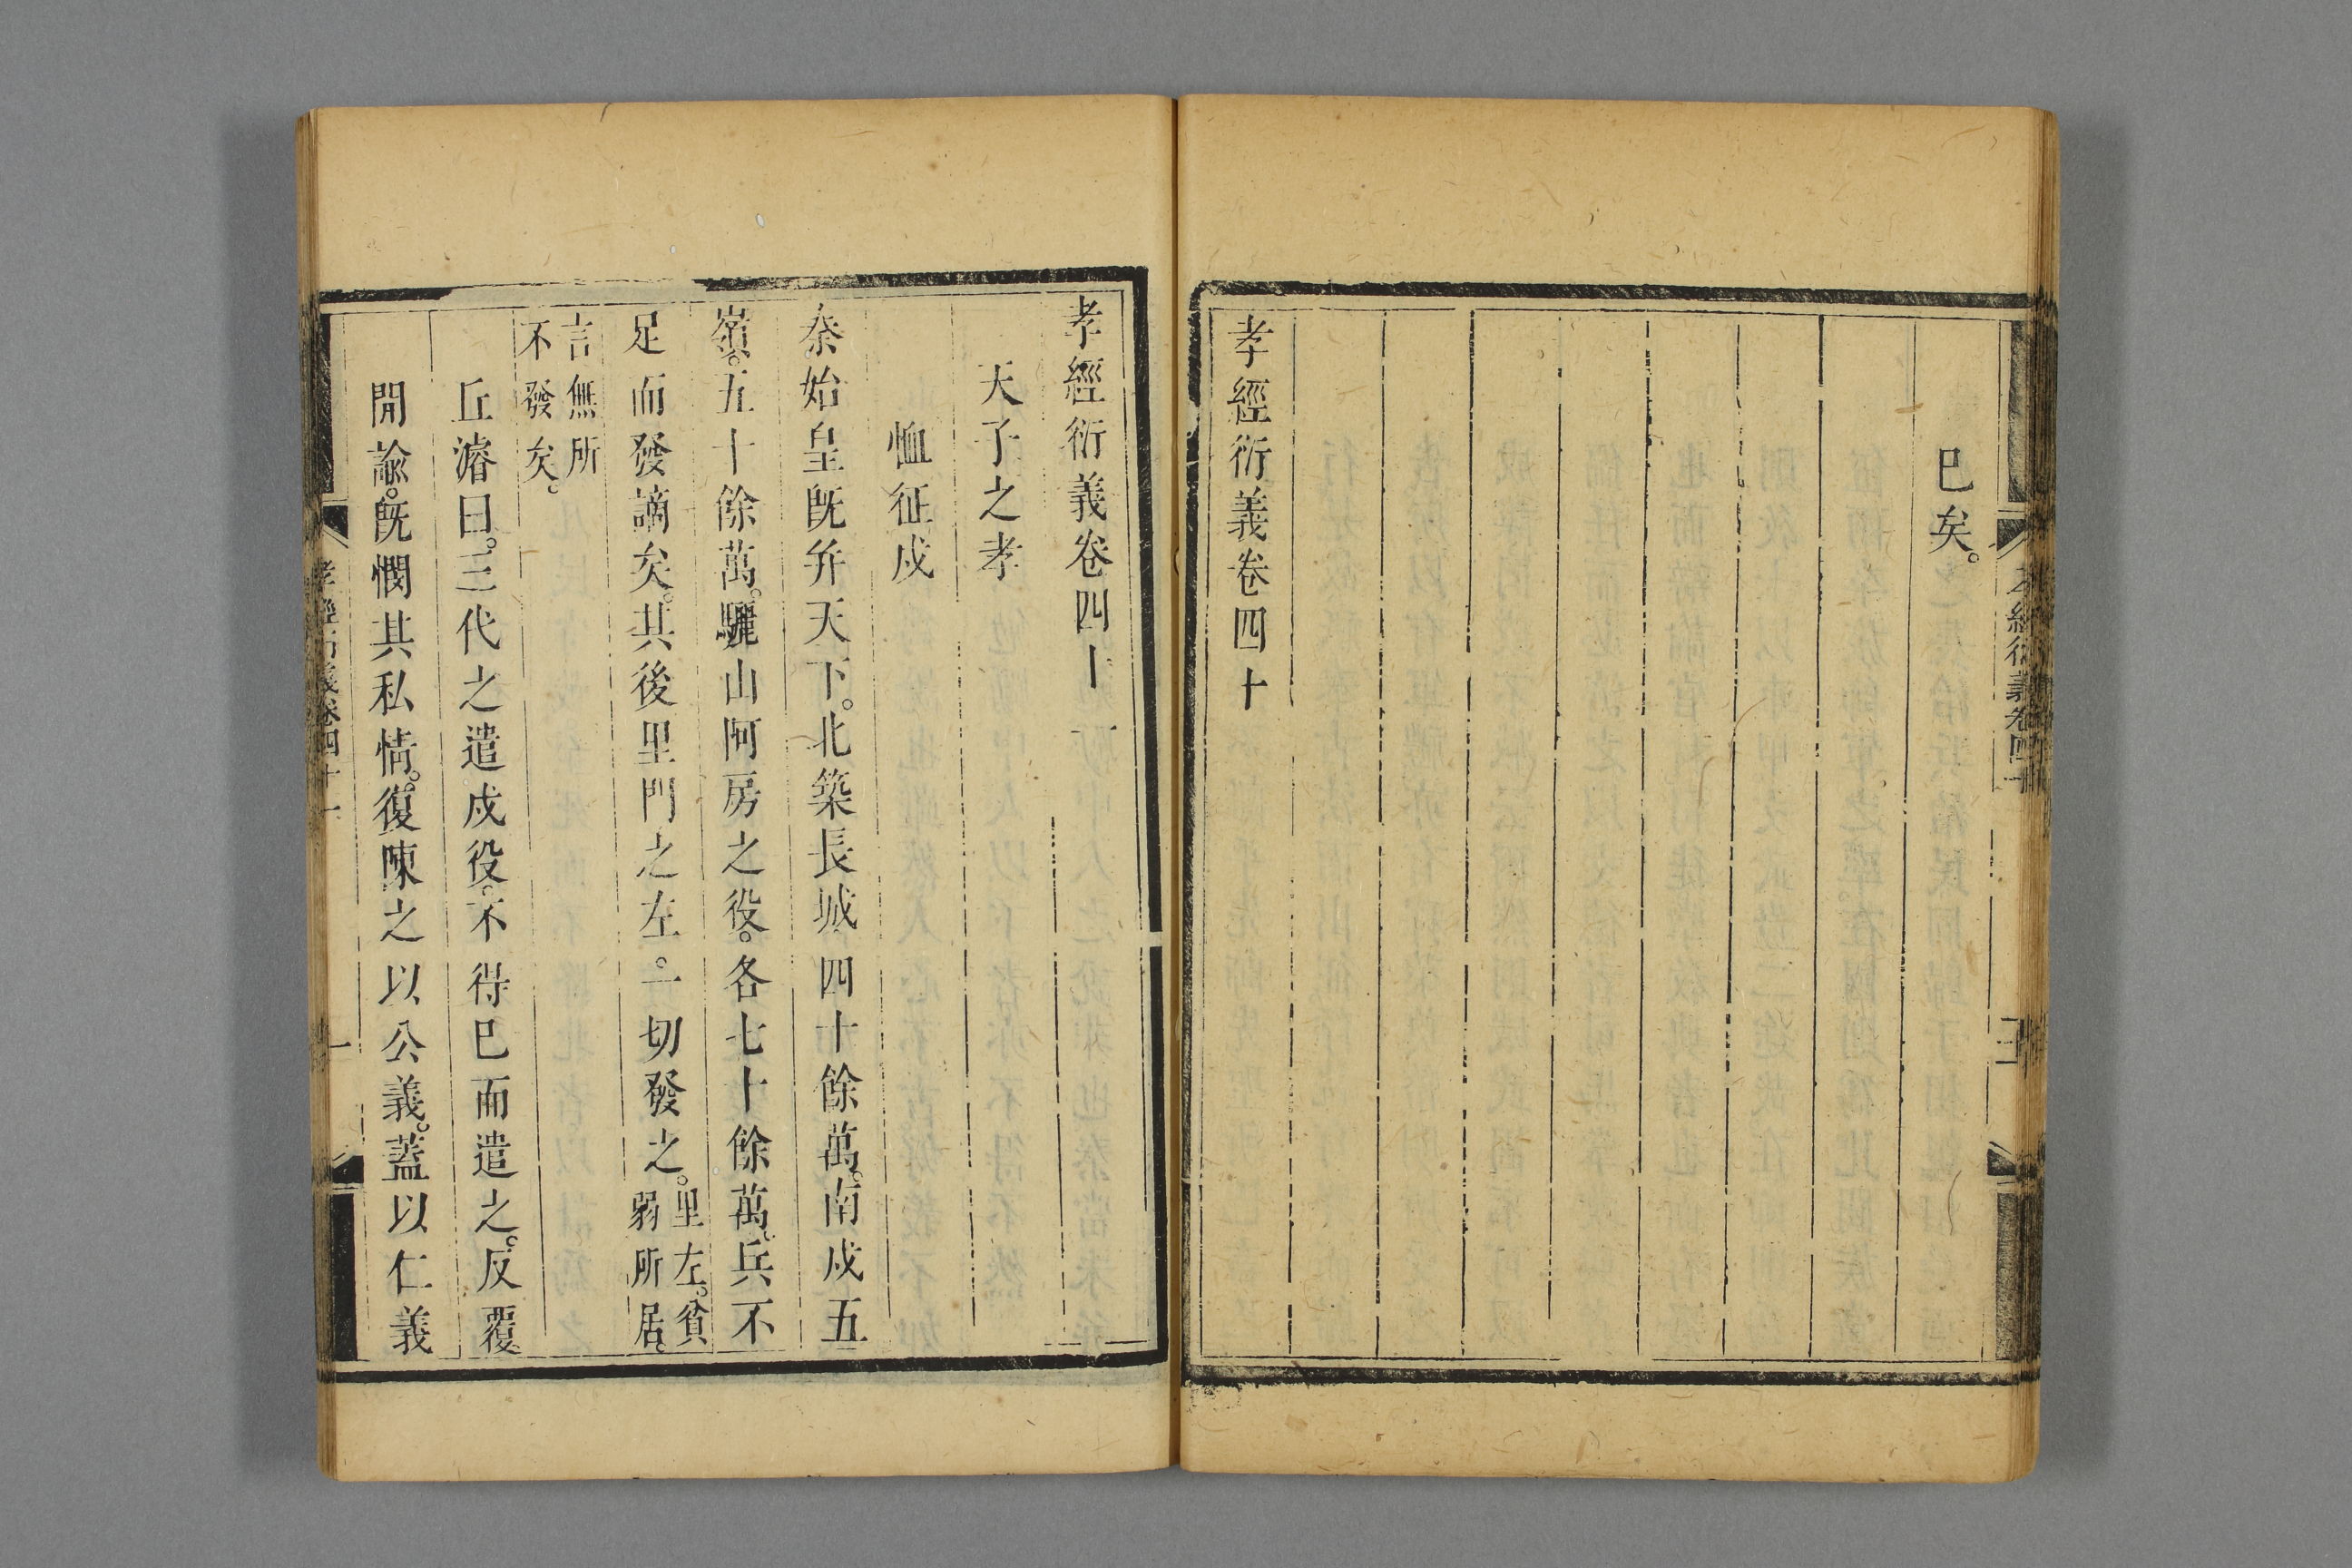 巳矣。
孝經衍義卷四十
孝經衍義卷四十一
天子之孝
恤征戍
秦始皇旣幷天下。北築長城四十餘萬。南戍五
嶺。五十餘萬。驪山阿房之役。各七十餘萬。兵不
足而發謫矣。其後里門之左。一切發之。里左。貧
弱所居。
言無所
不發矣。
丘濬曰。三代之遣戍役。不得巳而遣之。反覆
開諭。旣憫其私情。復陳之以公義。蓋以仁義
孝經衍義卷四十一
一